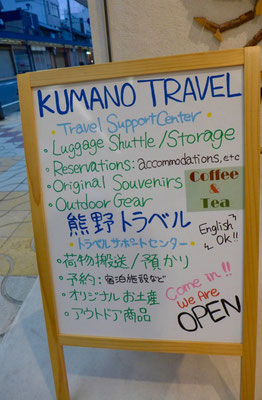 KUMANO TRAVEL
• Travel Support Center •
• Luggage Shuttle/Storage
• Reservations: accommodations, etc
• Original Souvenirs
• Outdoor Gear
Coffee
&
Tea
熊野トラベル
• トラベルサポートセンター •
English
Ok!!
• 荷物搬送/預かり
• 予約: 宿泊施設など
• オリジナルお土産
• アウトドア商品
Come in!!
We Are
OPEN